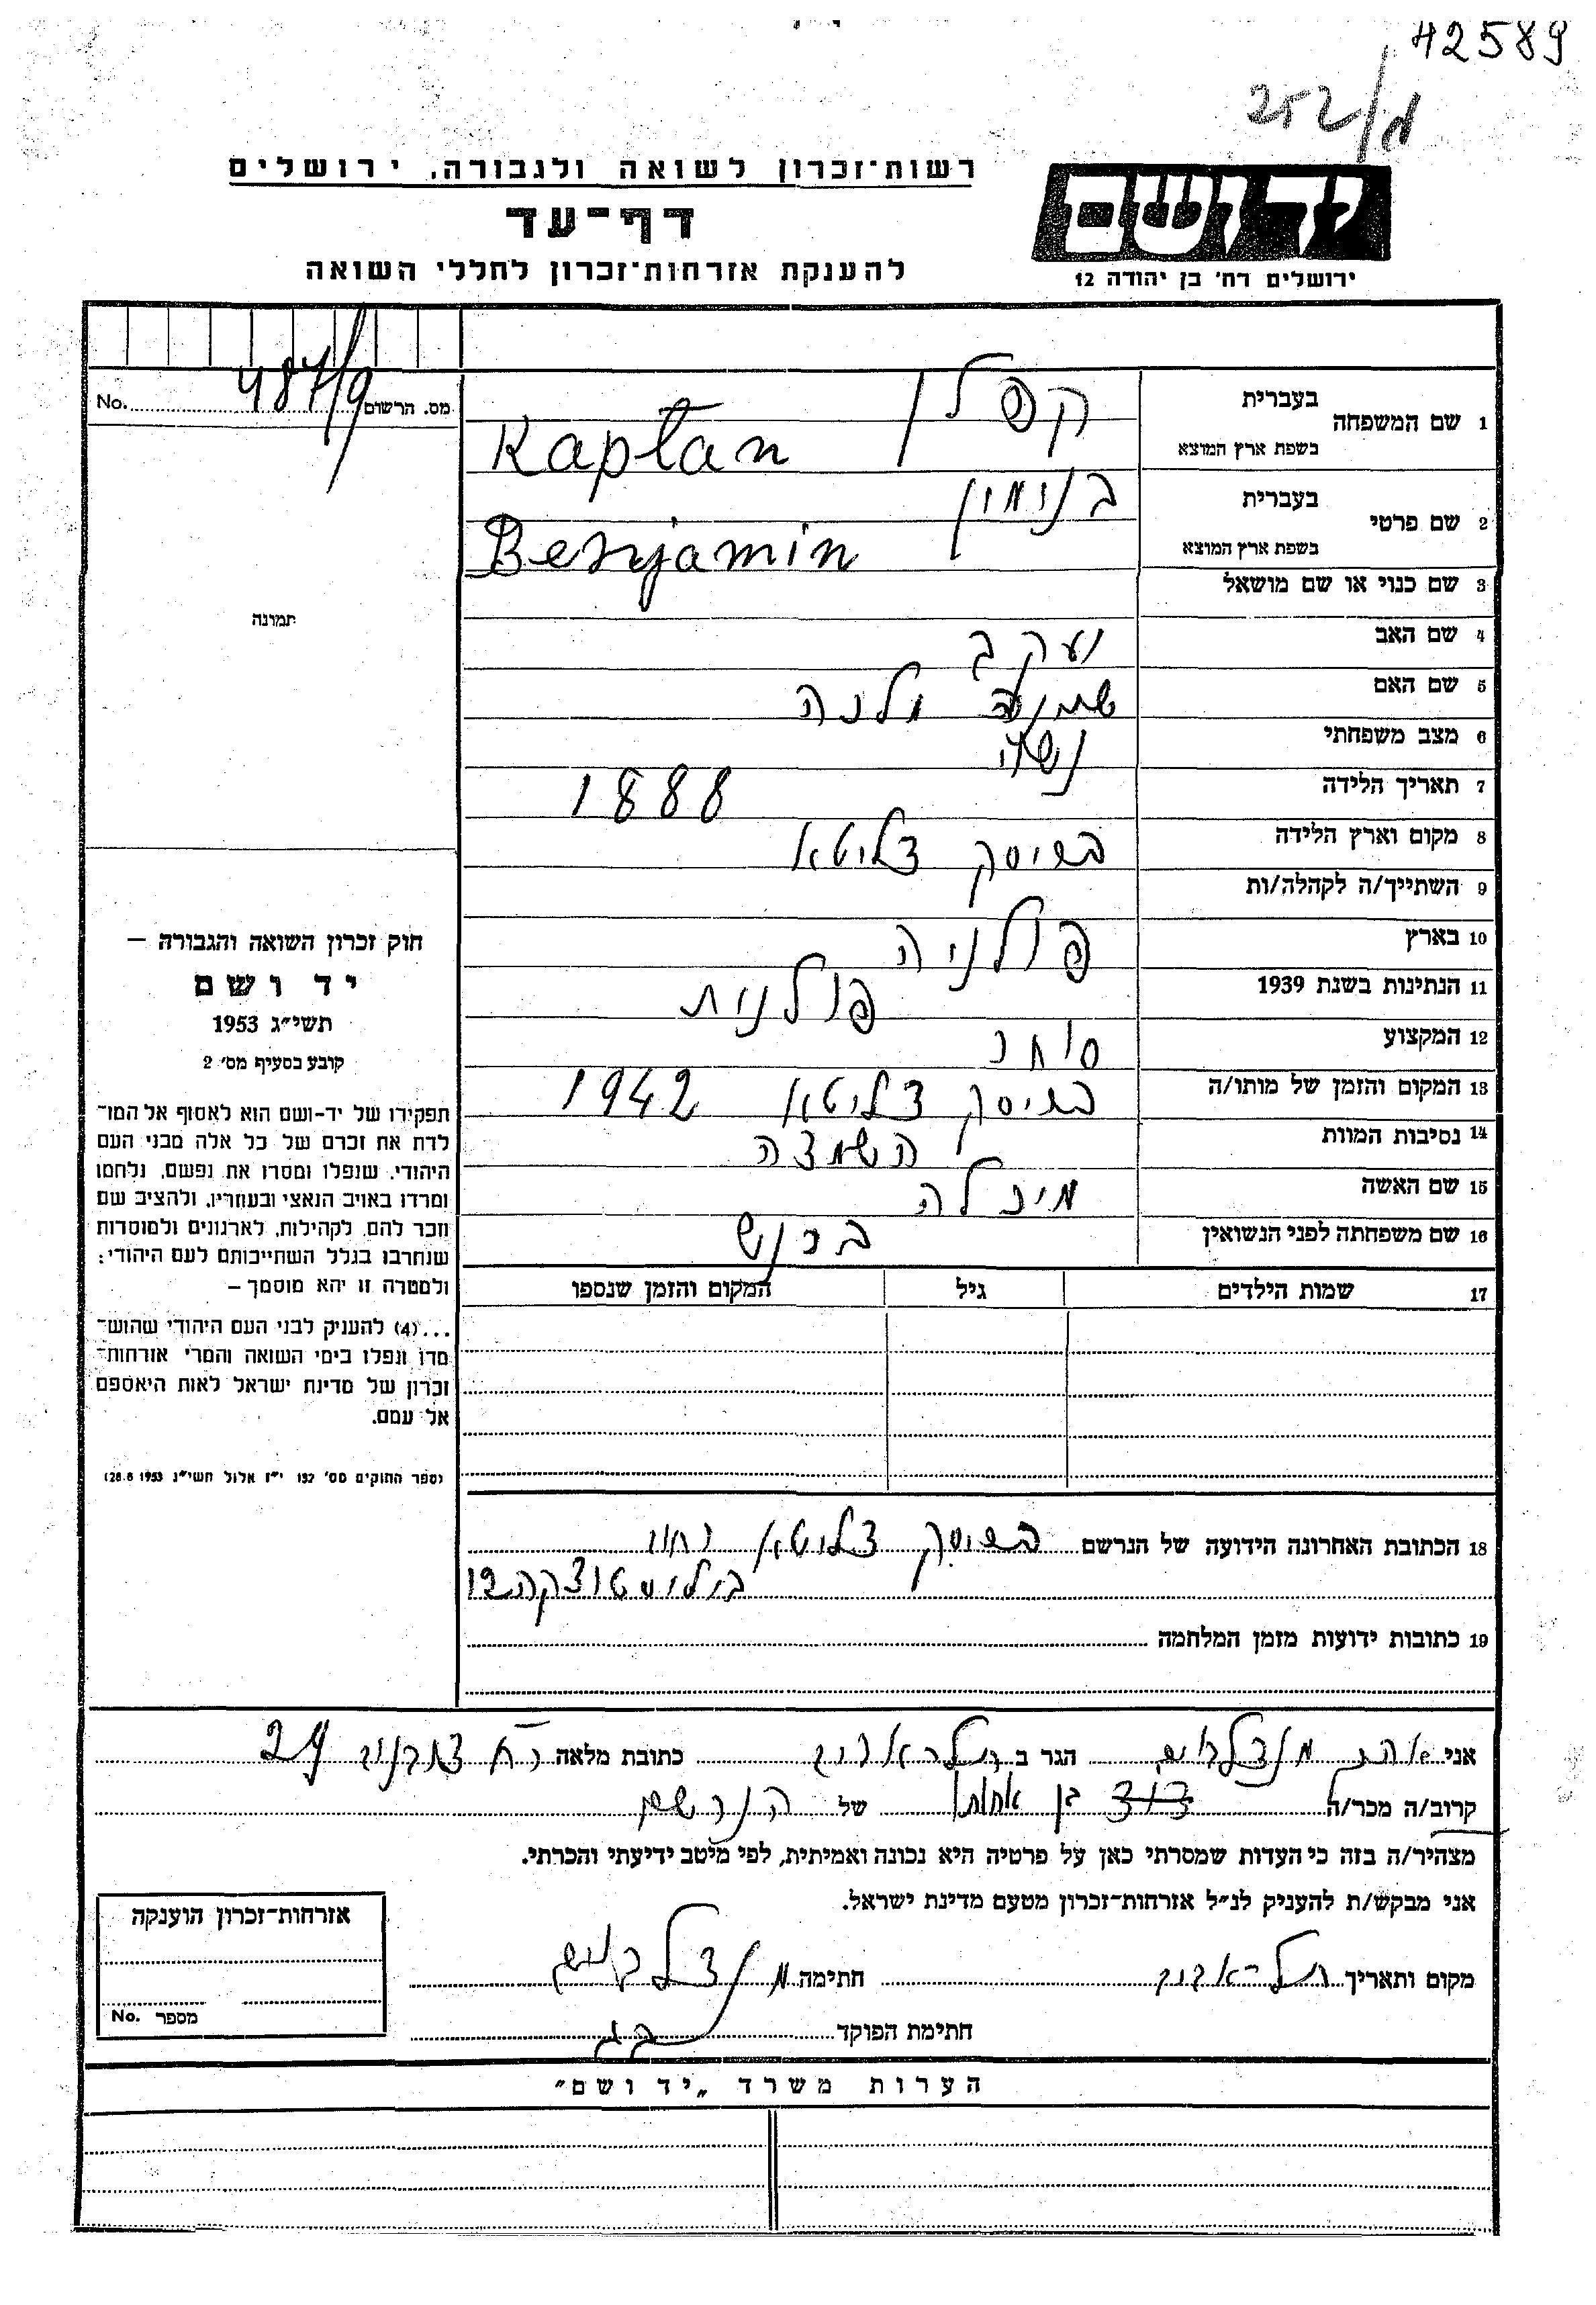 42589
252/מ
רשות־זכרון לשואה ולגבורה, ירושלים
דף־עד
להענקת אזרחות־זכרון לחללי השואה
יד ושם
ירושלים רח' בן יהודה 12
מס. הרשום 487/9 No.
1 שם המשפחה
בעברית קפלן
בשפת ארץ המוצא Kapłan
2 שם פרטי
בעברית בנימין
בשפת ארץ המוצא Benjamin
3 שם כנוי או שם מושאל
תמונה
4 שם האב יעקב
5 שם האם
6 מצב משפחתי נשוי
7 תאריך הלידה 1888
8 מקום וארץ הלידה בריסק דליטא
9 השתייך/ה לקהלה/ות
10 בארץ פולניה
11 הנתינות בשנת 1939 פולנית
12 המקצוע סוחר
13 המקום והזמן של מותו/ה בריסק דליטא 1942
14 נסיבות המוות השמדה
15 שם האשה מיכלה
16 שם משפחתה לפני הנשואין
17 שמות הילדים גיל המקום והזמן שנספו
חוק זכרון השואה והגבורה –
יד ושם
תשי״ג 1953
קובע בסעיף מס׳ 2
תפקידו של יד-ושם הוא לאסוף אל המו־
לדת את זכרם של כל אלה מבני העם
היהודי, שנפלו ומסרו את נפשם, נלחמו
ומרדו באויב הנאצי ובעוזריו, ולהציב שם
וזכר להם, לקהילות, לארגונים ולמוסדות
שנחרבו בגלל השתייכותם לעם היהודי;
ולמטרה זו יהא מוסמך –
...(4) להעניק לבני העם היהודי שהוש־
מדו ונפלו בימי השואה והמרי אזרחות־
זכרון של מדינת ישראל לאות היאספם
אל עמם.
(ספר החוקים מס׳ 132 י״ז אלול תשי״ג 28.8.1953)
18 הכתובת האחרונה הידועה של הנרשם בריסק דליטא רחוב
ביליסטוצקה 12
19 כתובות ידועות מזמן המלחמה
אני מנדלבוים הגר ב תל אביב כתובת מלאה רח 24
קרוב/ה מכר/ה דוד בן אחותו של הנרשם
מצהיר/ה בזה כי העדות שמסרתי כאן על פרטיה היא נכונה ואמיתית, לפי מיטב ידיעתי והכרתי.
אני מבקש/ת להעניק לנ״ל אזרחות־זכרון מטעם מדינת ישראל.
מקום ותאריך תל אביב חתימה מנדלבוים
חתימת הפוקד
אזרחות־זכרון הוענקה
מספר No.
הערות משרד „יד ושם״